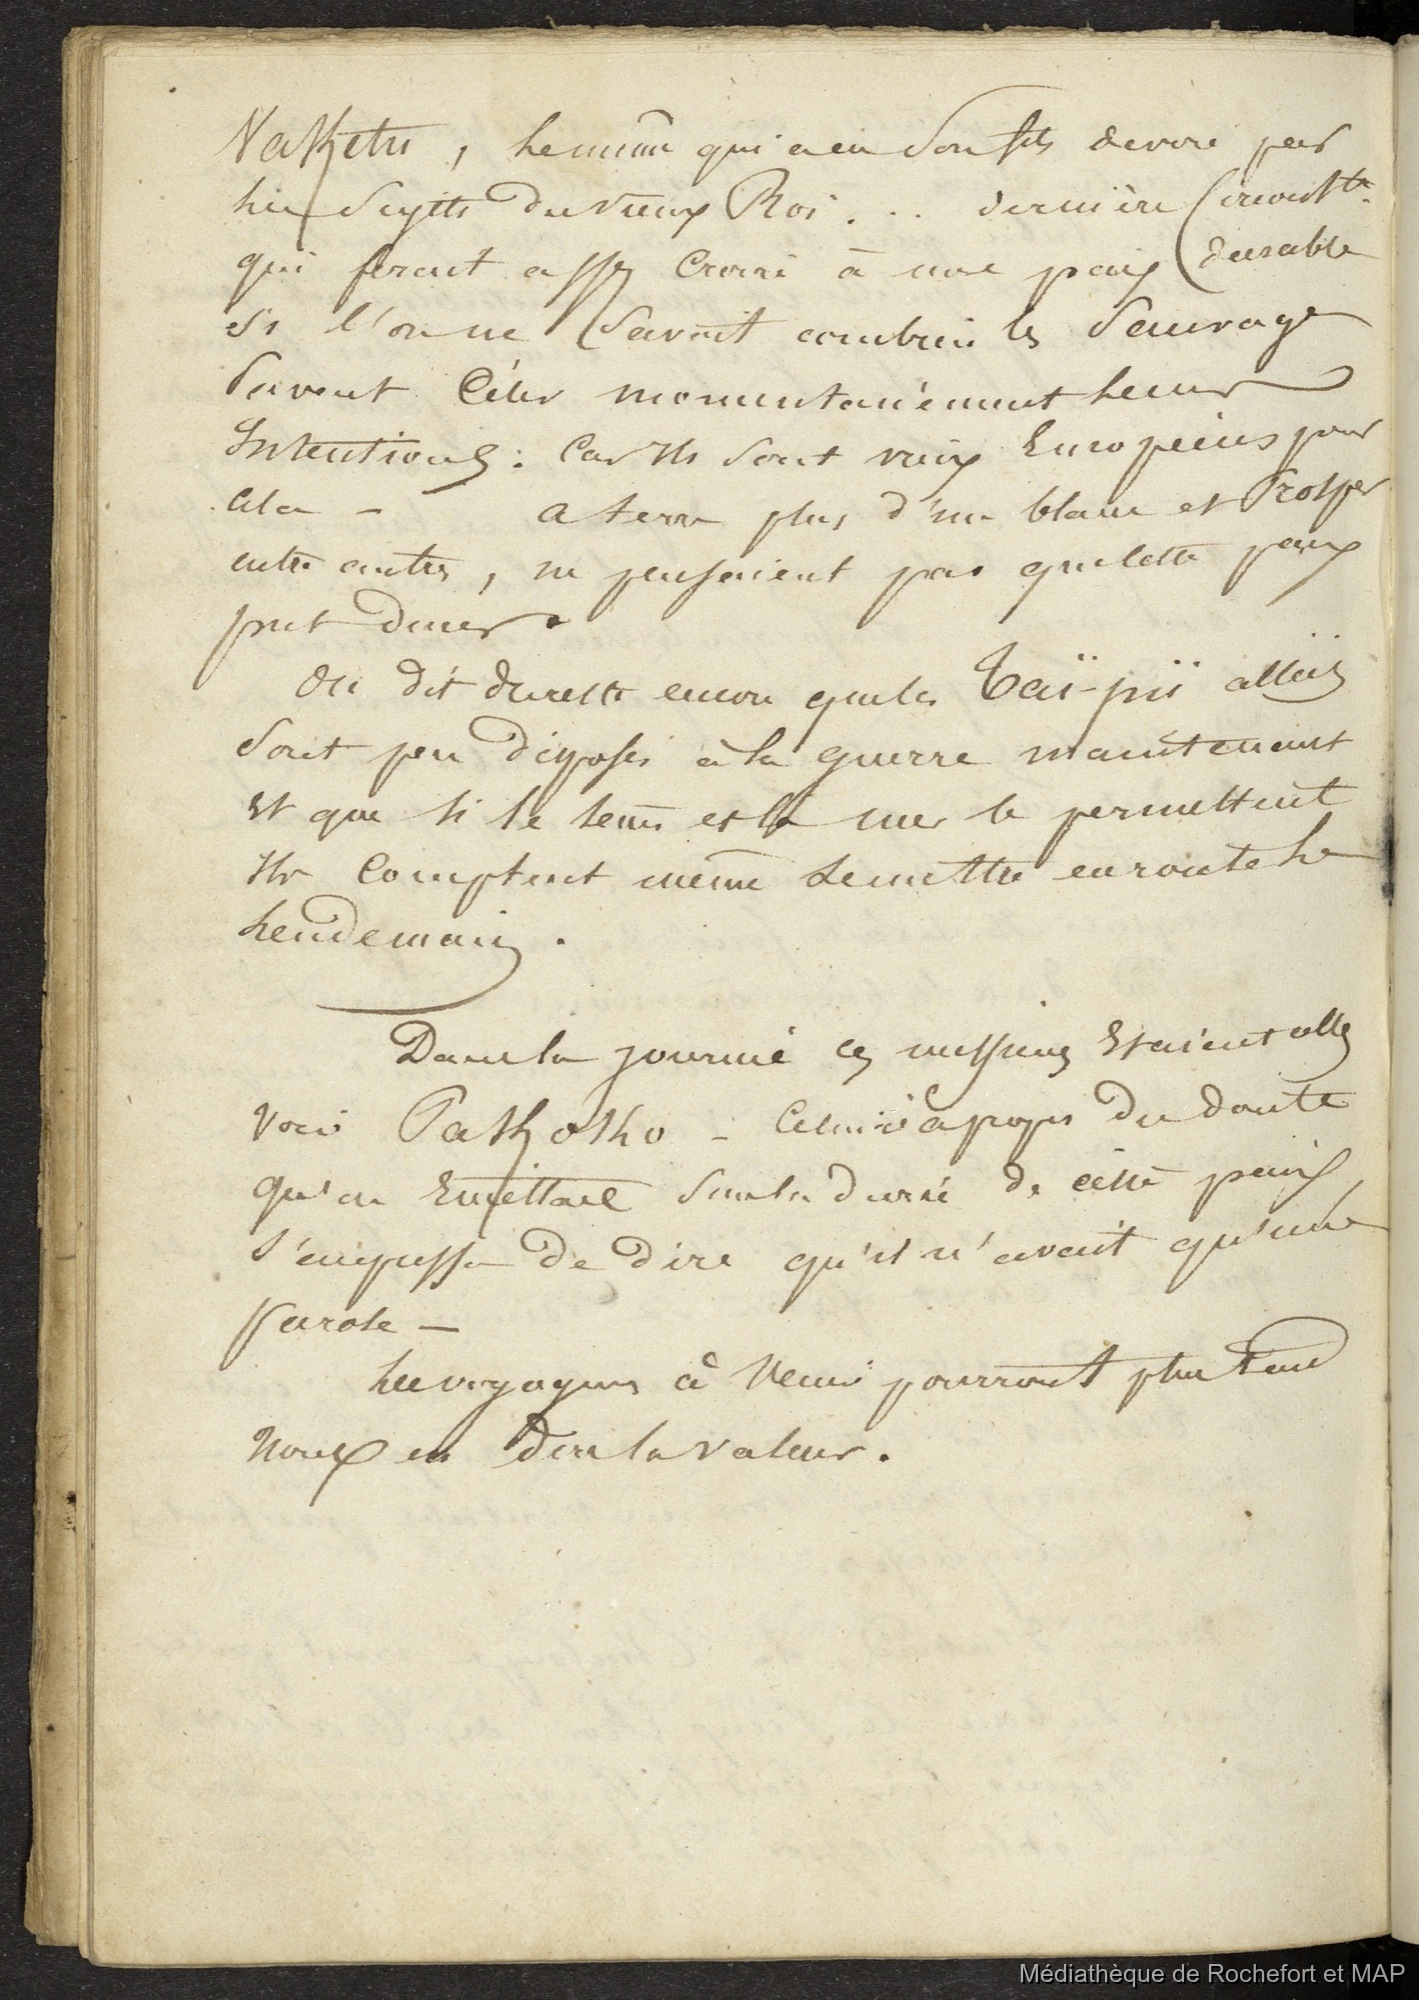 Vaketu, le même qui a eu son fils dévoré par
les sujets du vieux Roi... dernière circonst.ce
qui ferait assez croire à une paix durable
si l'on ne savait combien les sauvages
savent céler momentanément leurs
Intentions : Car Ils sont vrais Européens pour
cela - a terre plus d'un blanc et Prosper
entre autres, ne pensaient pas que cette paix
put durer.
On dit du reste encore que les Taï-piï alliés
sont peu disposés à la guerre maintenant
et que si le tems et la mer le permettent
Ils comptent même se mettre en route le
lendemain.
Dans la journée ces messieurs Etaient allés
voir Pakoko - Celui ci à propos du doute
qu'on Emettait sur la durée de cette paix
s'empressa de dire qu'il n'avait qu'une
parole —
Les voyageurs à venir pourront plus tard
nous en dire la valeur.
Médiathèque de Rochefort et MAP